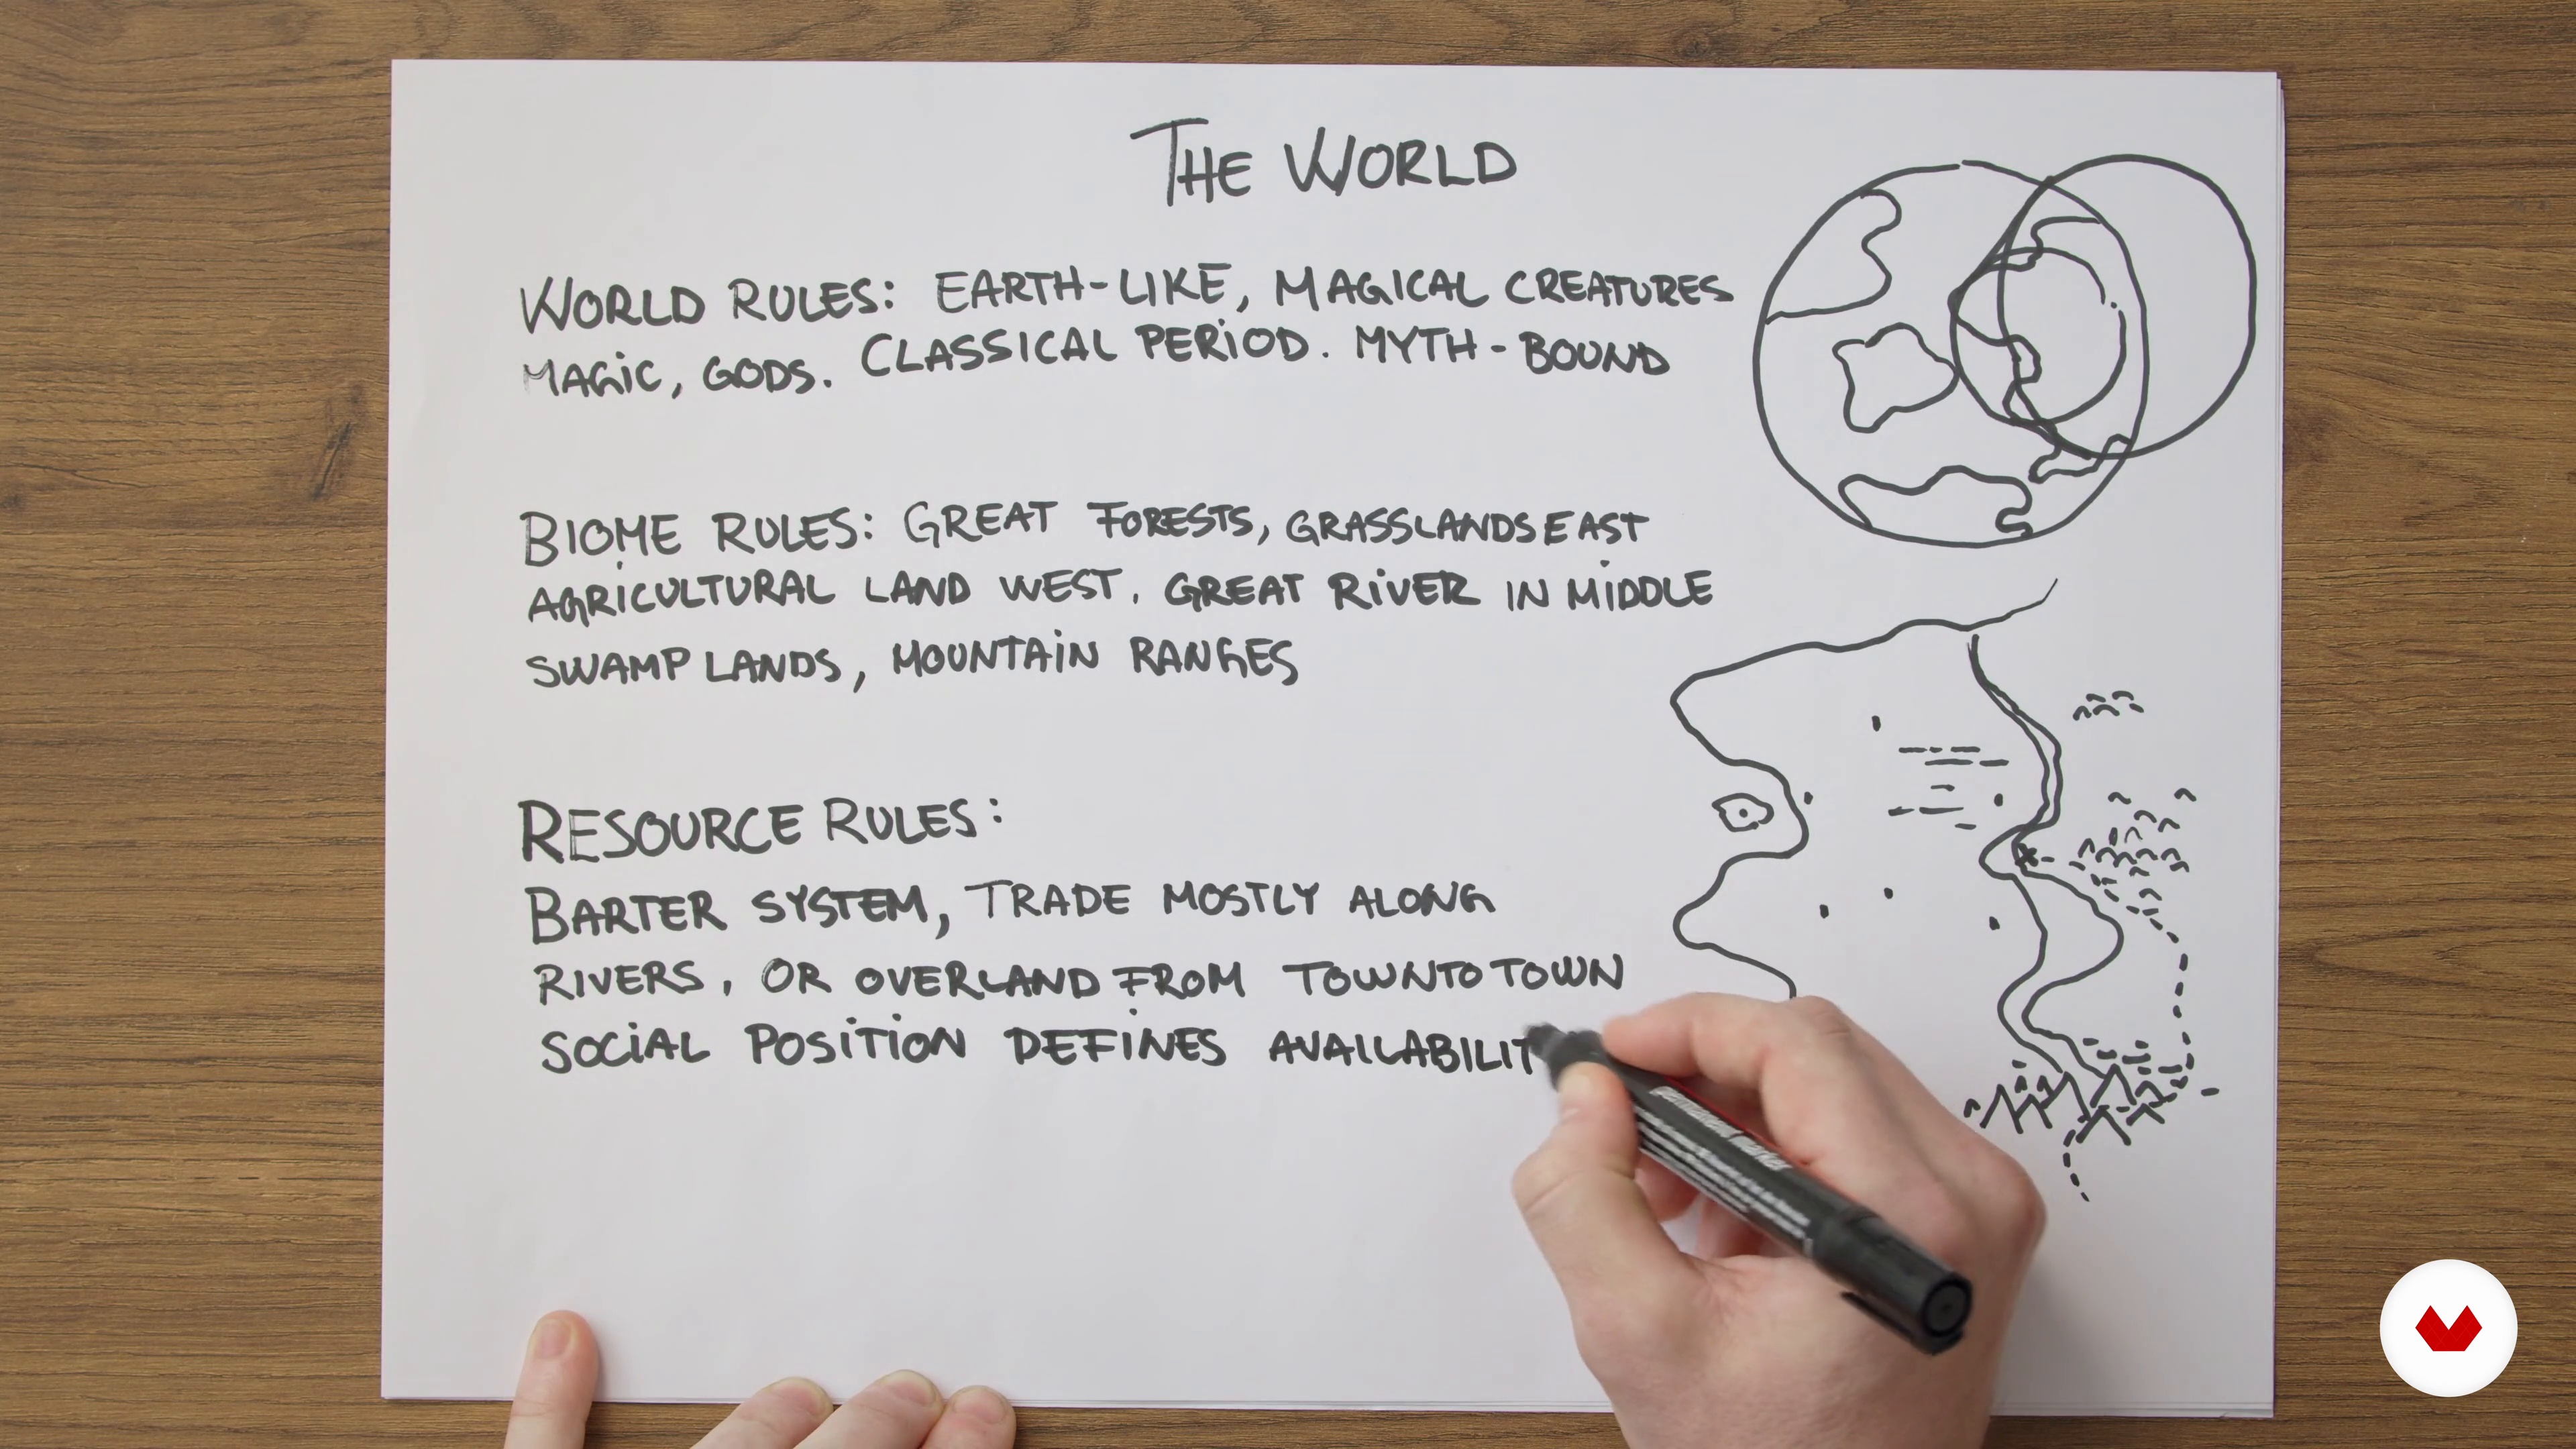 THE WORLD
WORLD RULES: EARTH-LIKE, MAGICAL CREATURES
MAGIC, GODS. CLASSICAL PERIOD. MYTH-BOUND
BIOME RULES: GREAT FORESTS, GRASSLANDS EAST
AGRICULTURAL LAND WEST. GREAT RIVER IN MIDDLE
SWAMP LANDS, MOUNTAIN RANGES
RESOURCE RULES:
BARTER SYSTEM, TRADE MOSTLY ALONG
RIVERS, OR OVERLAND FROM TOWN TO TOWN
SOCIAL POSITION DEFINES AVAILABILIT